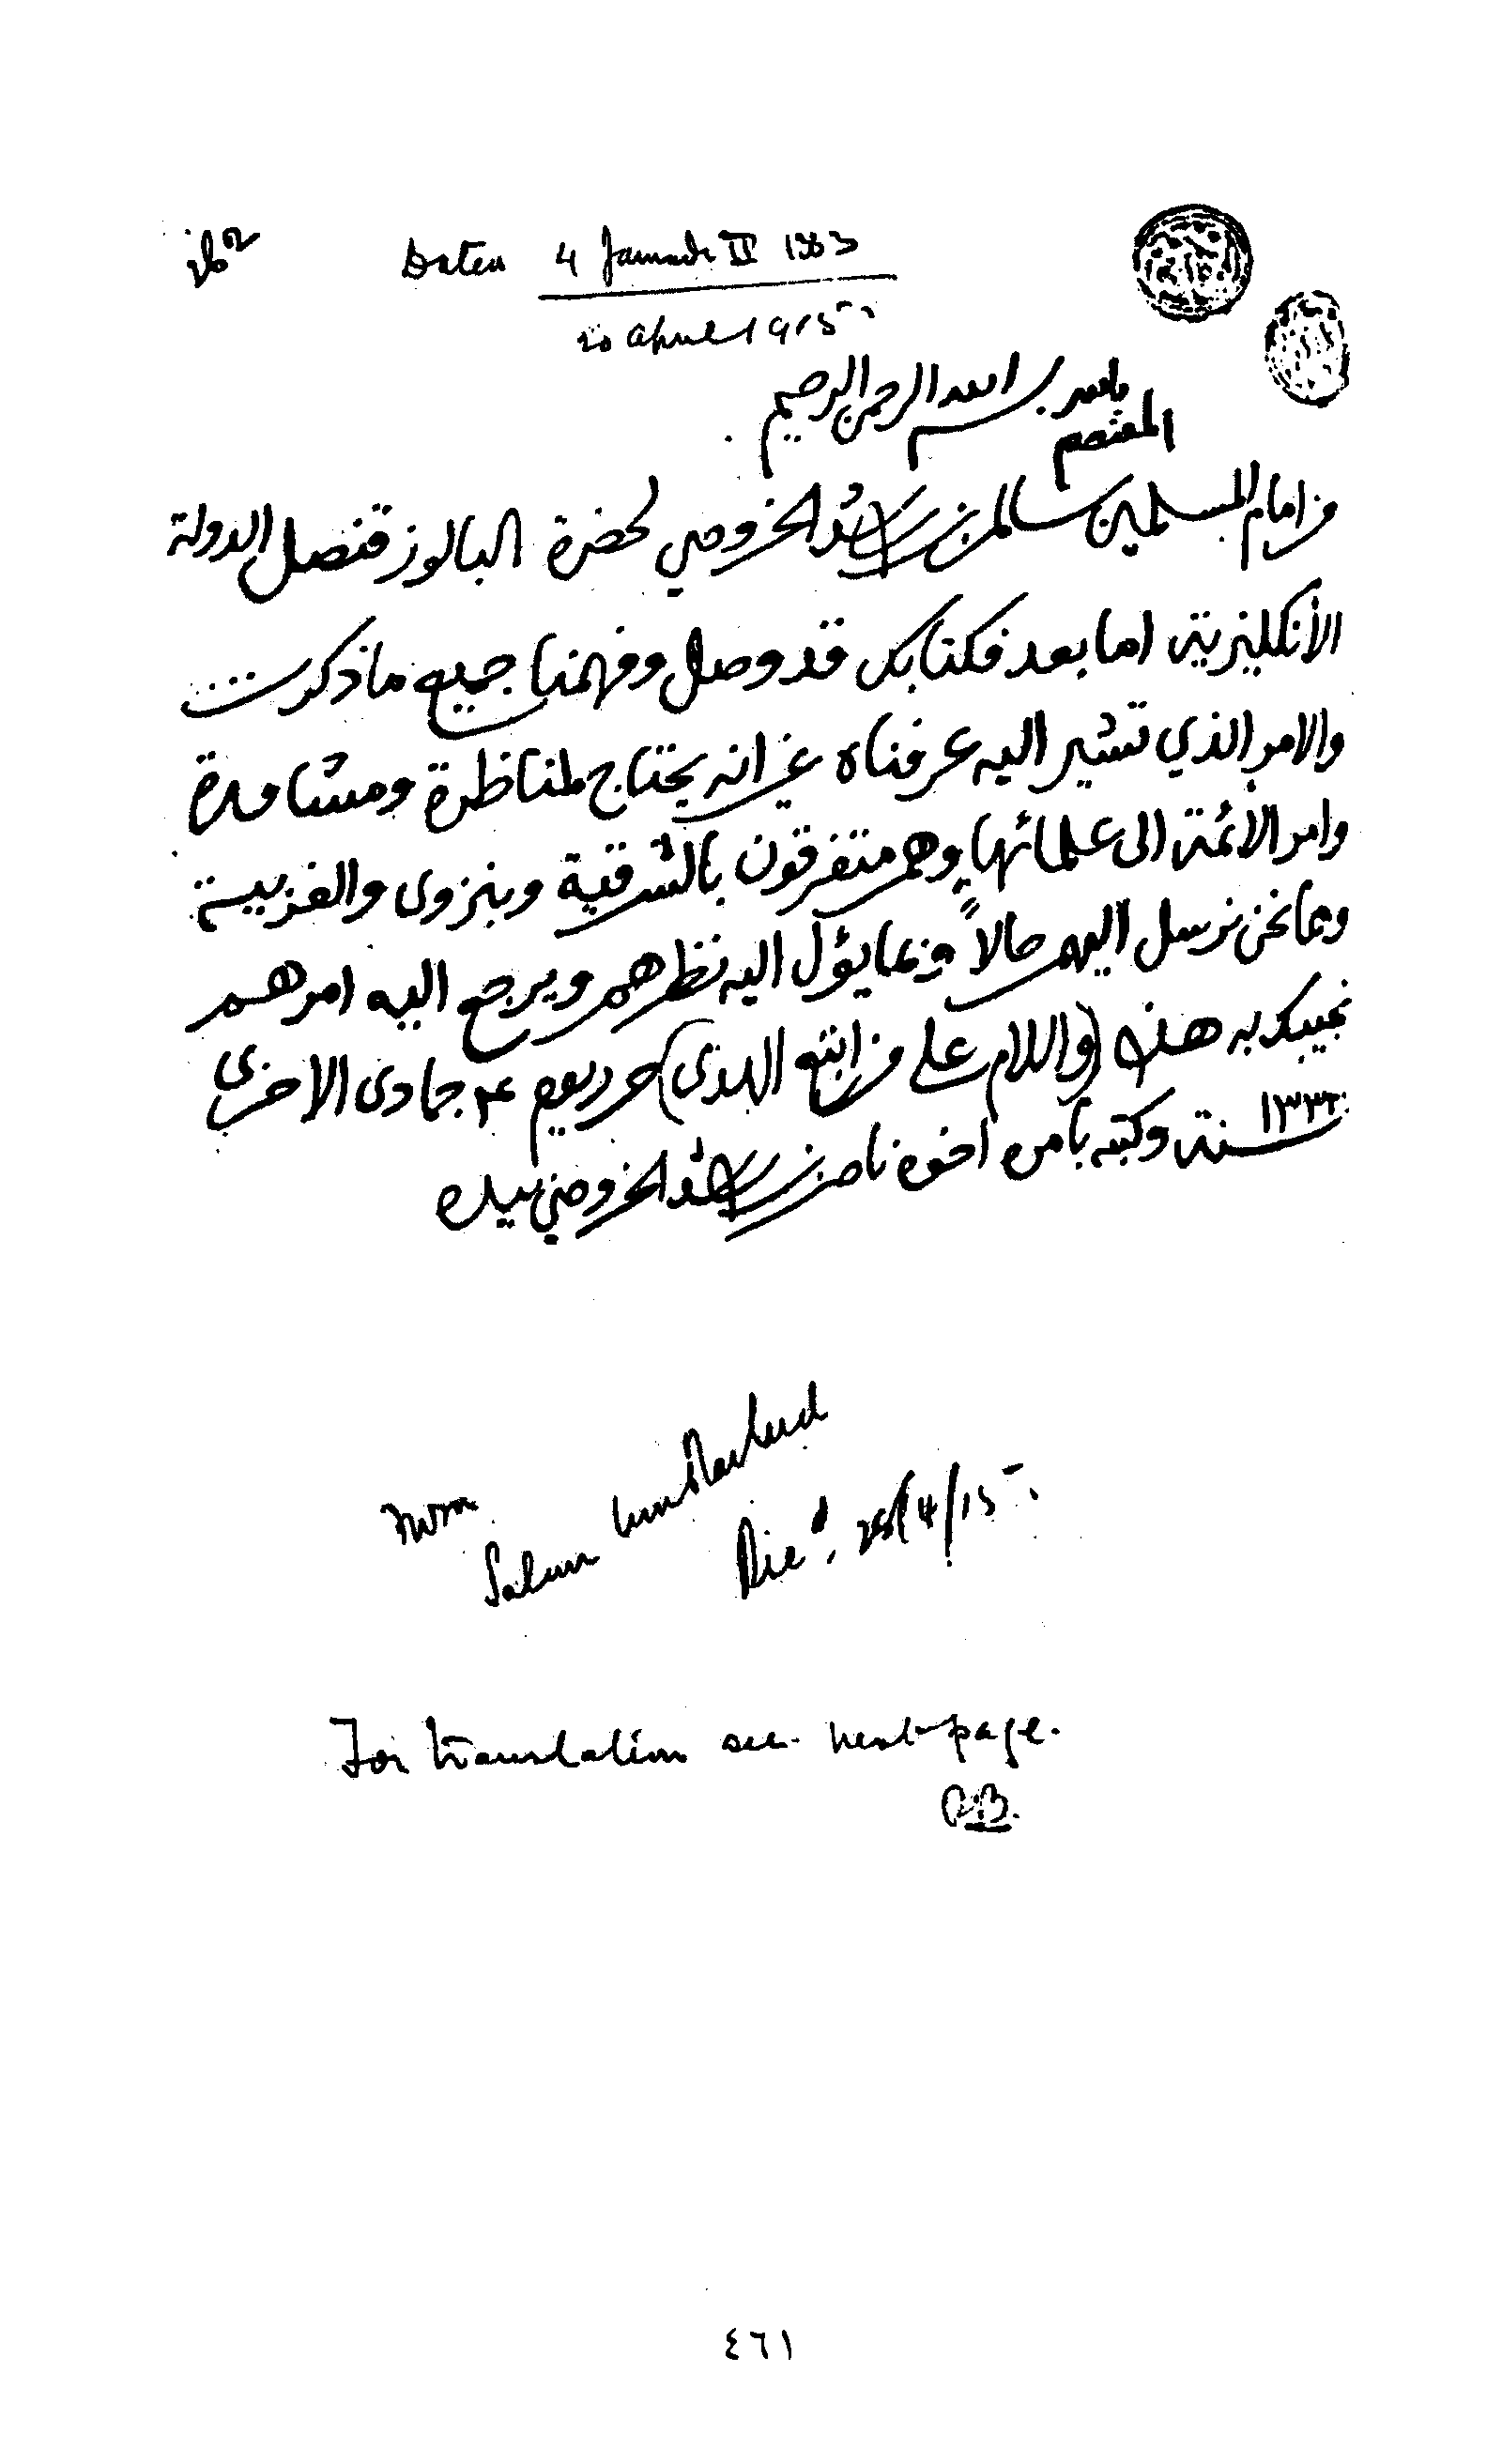 Dated 4 Jamadi II 1333
20 April 1915
بسم الله الرحمن الرحيم
المعتصم بالله
من امام المسلمين سالم بن راشد الخروصي لحضرة الباليوز قنصل الدولة
الأنكليزية اما بعد فكتابك قد وصل وفهمنا جميع ما ذكرت
والامر الذي تشير اليه عرفناه غير انه يحتاج لمناظرة ومشاهدة
وامر الائمة الى علمائها وهم متفرقون بالشرقية وبنزوى والغربية
وها نحن نرسل اليهم حالاً وبما يؤل اليه نظرهم ويرجع اليه امرهم
نجيبك به هذا (والسلام على من اتبع الهدى) حرر يوم ٤ جمادى الاخرى
سنة ١٣٣٣ وكتبه بأمره اخوه ناصر بن راشد الخروصي بيده
from
Salim bin Rashid
Recd. 25/4/15
For translation see next page.
٤٦١